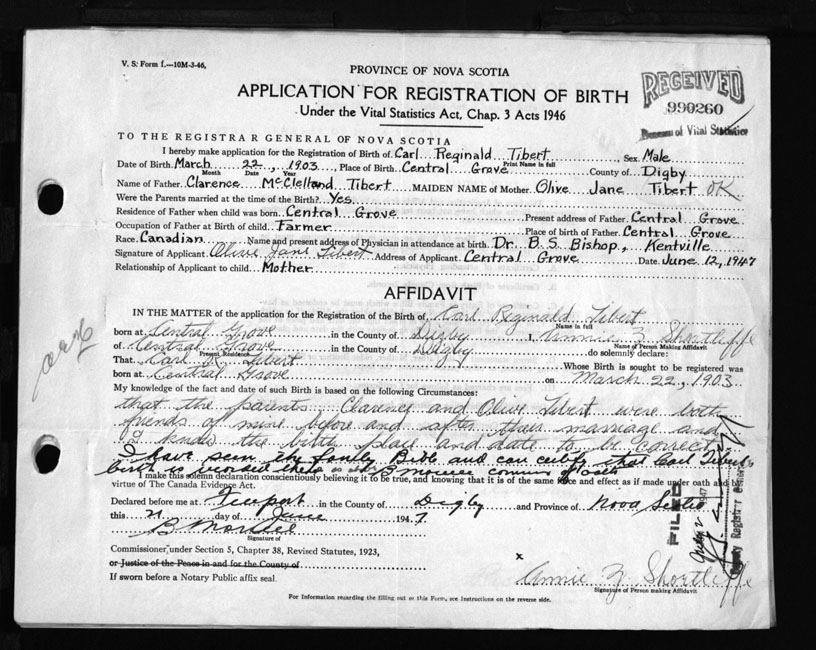 V. S. Form 1.—10M-3-46.
PROVINCE OF NOVA SCOTIA
APPLICATION FOR REGISTRATION OF BIRTH
Under the Vital Statistics Act, Chap. 3 Acts 1946
RECEIVED
990260
Bureau of Vital Statistics
TO THE REGISTRAR GENERAL OF NOVA SCOTIA
I hereby make application for the Registration of Birth of Carl Reginald Tibert Sex Male
Print Name in full
Date of Birth March 22, 1903 Place of Birth Central Grove County of Digby
Month Date Year
Name of Father Clarence McClelland Tibert MAIDEN NAME of Mother Olive Jane Tibert OK
Were the Parents married at the time of the Birth? Yes
Residence of Father when child was born Central Grove Present address of Father Central Grove
Occupation of Father at Birth of child Farmer Place of birth of Father Central Grove
Race Canadian Name and present address of Physician in attendance at birth Dr. B. S. Bishop, Kentville
Signature of Applicant Olive Jane Tibert Address of Applicant Central Grove Date June 12, 1947
Relationship of Applicant to child Mother
AFFIDAVIT
IN THE MATTER of the application for the Registration of the Birth of Carl Reginald Tibert
Name in full
born at Central Grove in the County of Digby I, Annie Z Shortliffe
Name of Person Making Affidavit
of Central Grove in the County of Digby do solemnly declare:
Present Residence
That Carl R. Tibert Whose Birth is sought to be registered was
born at Central Grove on March 22, 1903
My knowledge of the fact and date of such Birth is based on the following Circumstances:
that the parents Clarence and Olive Tibert were both
friends of mine before and after their marriage and
I know the birth place and date to be correct
I have seen the family Bible and can certify that Carl Tiberts
birth is recorded there
I make this solemn declaration conscientiously believing it to be true, and knowing that it is of the same force and effect as if made under oath and by
virtue of The Canada Evidence Act.
Declared before me at Freeport in the County of Digby and Province of Nova Scotia
this 21 day of June 1947
Signature of
Commissioner under Section 5, Chapter 38, Revised Statutes, 1923,
or Justice of the Peace in and for the County of
If sworn before a Notary Public affix seal.
x Annie Z Shortliffe
Signature of Person making Affidavit
For Information regarding the filling out of this Form, see Instructions on the reverse side.
FILED
1947
Deputy Registrar General